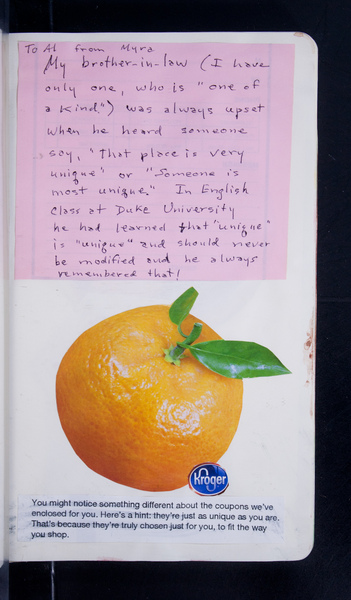 To Al from Myra
My brother-in-law (I have
only one, who is "one of
a kind") was always upset
when he heard someone
say, "That place is very
unique" or "Someone is
most unique." In English
class at Duke University
he had learned that "unique"
is "unique" and should never
be modified and he always
remembered that!
Kroger
You might notice something different about the coupons we've
enclosed for you. Here's a hint: they're just as unique as you are.
That's because they're truly chosen just for you, to fit the way
you shop.